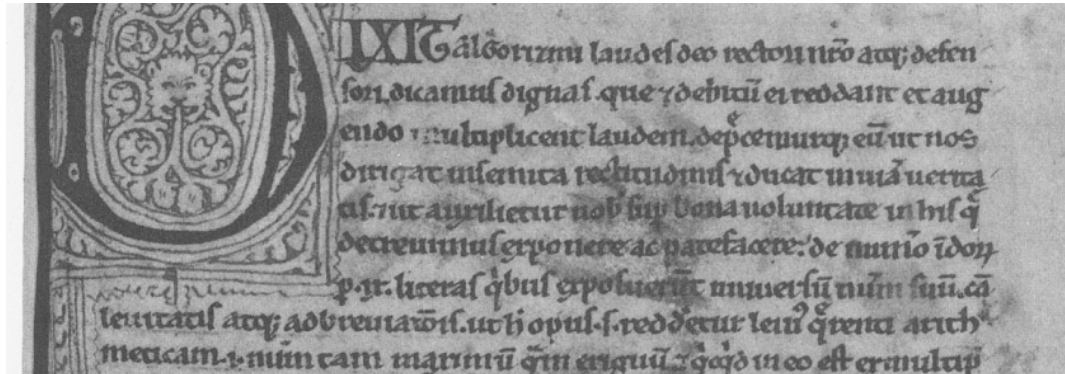 DIXIT algorizmi laudes deo rectori nr̃o atq; defen
sori. dicamus dignas. que ⁊ debitũ ei reddant et aug
endo multiplicent laudem. dep̃cemurq; eũ ut nos
dirigat in semita rectitudinis ⁊ ducat in uiã uerita
tis. ⁊ ut auxilietur nob̃ sup̃ bona uoluntate in his q̃
decreuimus exponere ac patefacere: de num̃o ĩdoꝝ
p .ix. literas q̃bus exposuerũt uniuersũ num̃ suũ. cã
leuitatis atq; adbreuiatõis. ut h̃ opus .s. redderetur leui⁹ q̃renti arith
meticam .i. num̃ tam maximũ q̃m exiguũ ⁊ q̃cq̃d in eo est ex multip̃